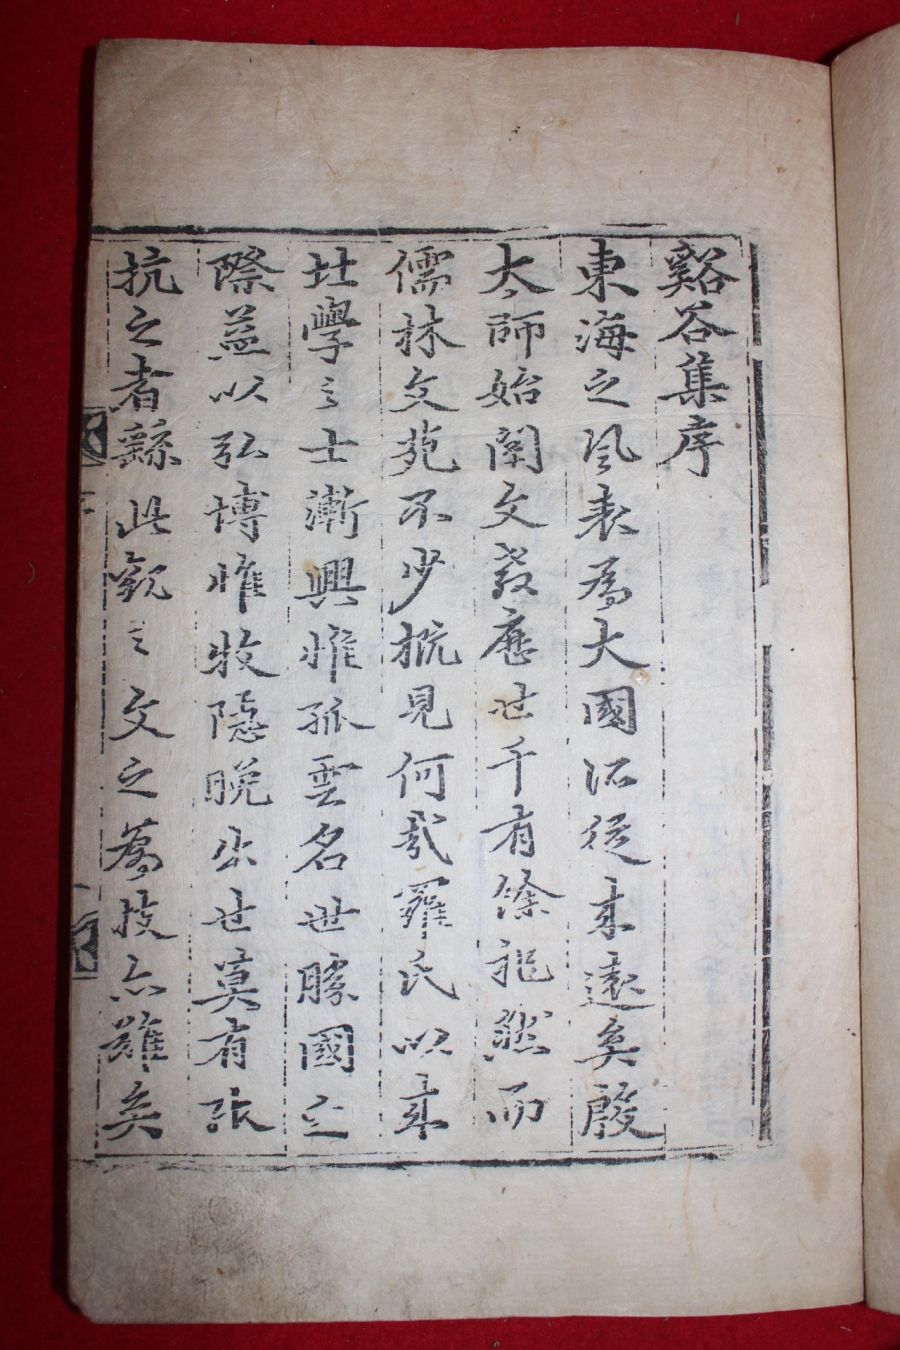 谿谷集序
東海之風表為大國所從來遠矣殷
太師始闡文敎歷世千有餘祀然而
儒林文苑不少槪見何哉羅氏以來
北學之士漸興惟孤雲名世勝國之
際益以弘博惟牧隱晚出世莫有張
抗之者繇此觀之文之為技亦難矣